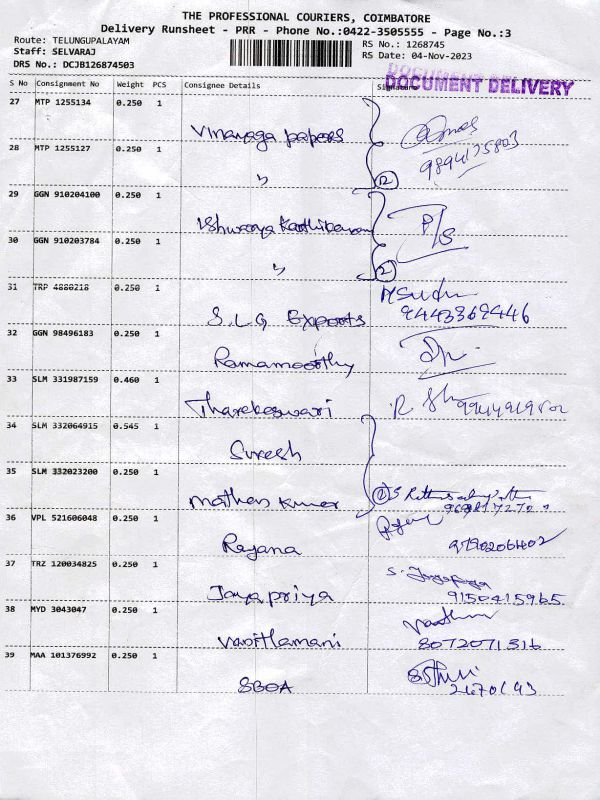 THE PROFESSIONAL COURIERS, COIMBATORE
Delivery Runsheet - PRR - Phone No.:0422-3505555 - Page No.:3
Route: TELUNGUPALAYAM
RS No.: 1268745
Staff: SELVARAJ
RS Date: 04-Nov-2023
DRS No.: DCJB126874503
S No Consignment No Weight PCS Consignee Details Signature
DOCUMENT DELIVERY
27 MTP 1255134 0.250 1 Vinayaga papers
9894125803
28 MTP 1255127 0.250 1 " 2
29 GGN 910204100 0.250 1 Ishwarya Karthikeyan P/S
30 GGN 910203784 0.250 1 " 2
31 TRP 4880218 0.250 1 S.L.G Exports
9443369446
32 GGN 98496183 0.250 1 Ramamoorthy
33 SLM 331987159 0.460 1 Tharakeswari R
34 SLM 332064915 0.545 1 Suresh
35 SLM 332023200 0.250 1 mathan kumar 2
36 VPL 521606048 0.250 1 Rayana
9790206402
37 TRZ 120034825 0.250 1 Jayapriya S. Jayapriya
9150415965
38 MYD 3043047 0.250 1 Vasithamani
8072071316
39 MAA 101376992 0.250 1 SBOA
2470193